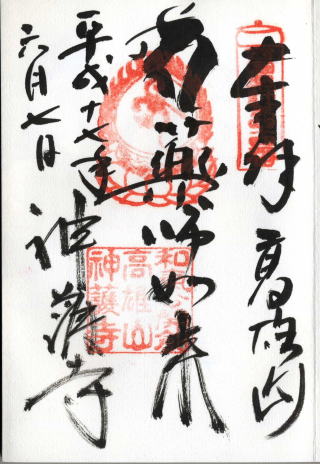 奉拝 高雄山
薬師如来
平成十七年 神護寺
六月七日
高雄山
神護寺